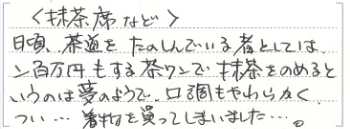 〈抹茶席など〉
日頃、茶道をたのしんでいる者としては、
ン百万円もする茶ワンで抹茶をのめると
いうのは夢のようで、口調もやわらかく
つい… 着物を買ってしまいました…。